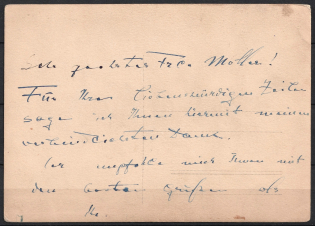 Sehr geehrter Herr Moller!
Für Ihre liebenswürdigen Zeilen
sage ich Ihnen hiermit meinen
verbindlichsten Dank.
Ich empfehle mich Ihnen mit
den besten Grüßen als
Ihr